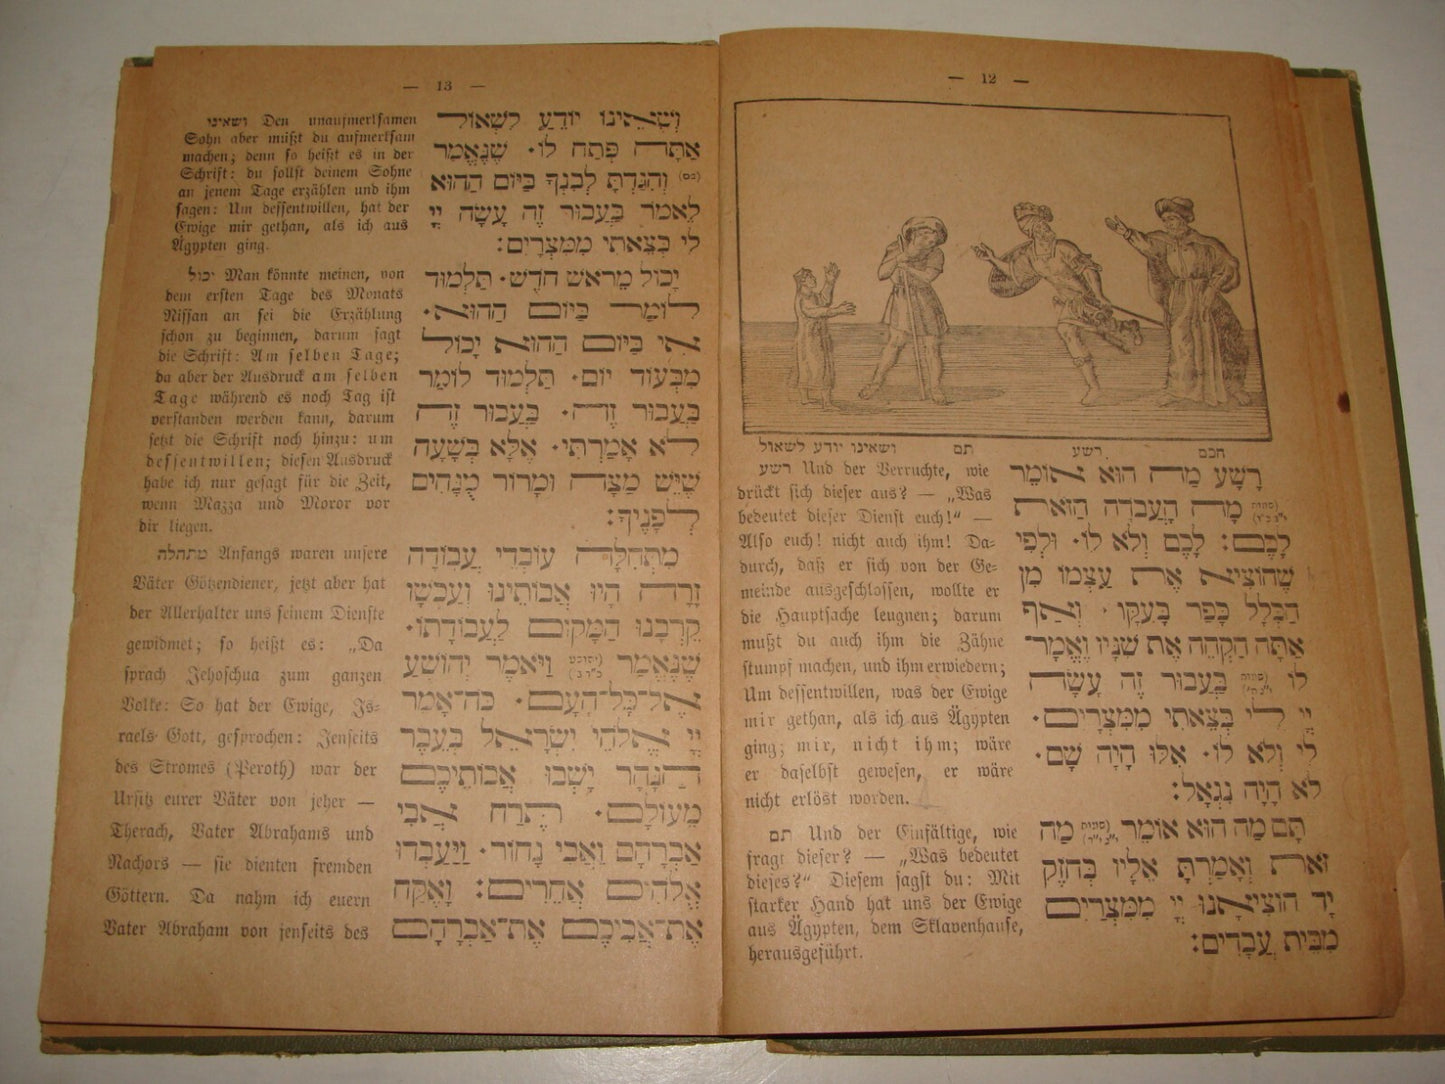 — 12 —
חכם רשע תם ושאינו יודע לשאול
רָשָׁע מַה הוּא אוֹמֵר
(שמות י״ב כ״ו) מָה הָעֲבֹדָה הַזּאֹת
לָכֶם: לָכֶם וְלֹא לוֹ. וּלְפִי
שֶׁהוֹצִיא אֶת עַצְמוֹ מִן
הַכְּלָל כָּפַר בָּעִקָּר. וְאַף
אַתָּה הַקְהֵה אֶת שִׁנָּיו וֶאֱמָר־
לוֹ (שמות י״ג ח׳) בַּעֲבוּר זֶה עָשָׂה
יְיָ לִי בְּצֵאתִי מִמִּצְרָיִם.
לִי וְלֹא לוֹ. אִלּוּ הָיָה שָׁם.
לֹא הָיָה נִגְאָל:
תָּם מַה הוּא אוֹמֵר (שמות י״ג י״ד) מַה
זּאֹת וְאָמַרְתָּ אֵלָיו בְּחֹזֶק
יָד הוֹצִיאָנוּ יְיָ מִמִּצְרַיִם
מִבֵּית עֲבָדִים:
רשע Und der Verruchte, wie
drückt sich dieser aus? — „Was
bedeutet dieser Dienst euch!“ —
Also euch! nicht auch ihm! Da-
durch, daß er sich von der Ge-
meinde ausgeschlossen, wollte er
die Hauptsache leugnen; darum
mußt du auch ihm die Zähne
stumpf machen, und ihm erwiedern;
Um dessentwillen, was der Ewige
mir gethan, als ich aus Ägypten
ging; mir, nicht ihm; wäre
er daselbst gewesen, er wäre
nicht erlöst worden.
תם Und der Einfältige, wie
fragt dieser? — „Was bedeutet
dieses?“ Diesem sagst du: Mit
starker Hand hat uns der Ewige
aus Ägypten, dem Sklavenhause,
herausgeführt.
— 13 —
וְשֶׁאֵינוֹ יוֹדֵעַ לִשְׁאוֹל
אַתָּה פְּתַח לוֹ. שֶׁנֶּאֱמַר
(שם) וְהִגַּדְתָּ לְבִנְךָ בַּיּוֹם הַהוּא
לֵאמֹר בַּעֲבוּר זֶה עָשָׂה יְיָ
לִי בְּצֵאתִי מִמִּצְרָיִם:
יָכוֹל מֵראשׁ חֹדֶשׁ. תַּלְמוּד
לוֹמַר בַּיּוֹם הַהוּא.
אִי בַּיּוֹם הַהוּא יָכוֹל
מִבְּעוֹד יוֹם. תַּלְמוּד לוֹמַר
בַּעֲבוּר זֶה. בַּעֲבוּר זֶה
לֹא אָמַרְתִּי. אֶלָּא בְּשָׁעָה
שֶׁיֵּשׁ מַצָּה וּמָרוֹר מֻנָּחִים
לְפָנֶיךָ:
מִתְּחִלָּה עוֹבְדֵי עֲבוֹדָה
זָרָה הָיוּ אֲבוֹתֵינוּ וְעַכְשָׁו
קֵרְבָנוּ הַמָּקוֹם לַעֲבוֹדָתוֹ.
שֶׁנֶּאֱמַר (יהושע כ״ד ב׳) וַיּאֹמֶר יְהוֹשֻׁעַ
אֶל־כָּל־הָעָם. כֹּה־אָמַר
יְיָ אֱלֹהֵי יִשְׂרָאֵל בְּעֵבֶר
הַנָּהָר יָשְׁבוּ אֲבוֹתֵיכֶם
מֵעוֹלָם. תֶּרַח אֲבִי
אַבְרָהָם וַאֲבִי נָחוֹר. וַיַּעַבְדוּ
אֱלֹהִים אֲחֵרִים: וָאֶקַּח
אֶת־אֲבִיכֶם אֶת־אַבְרָהָם
ושאינו Den unaufmerksamen
Sohn aber mußt du aufmerksam
machen; denn so heißt es in der
Schrift: du sollst deinem Sohne
an jenem Tage erzählen und ihm
sagen: Um dessentwillen, hat der
Ewige mir gethan, als ich aus
Ägypten ging.
יכול Man könnte meinen, von
dem ersten Tage des Monats
Nissan an sei die Erzählung
schon zu beginnen, darum sagt
die Schrift: Am selben Tage;
da aber der Ausdruck am selben
Tage während es noch Tag ist
verstanden werden kann, darum
setzt die Schrift noch hinzu: um
dessentwillen; diesen Ausdruck
habe ich nur gesagt für die Zeit,
wenn Mazza und Moror vor
dir liegen.
מתחלה Anfangs waren unsere
Väter Götzendiener, jetzt aber hat
der Allerhalter uns seinem Dienste
gewidmet; so heißt es: „Da
sprach Jehoschua zum ganzen
Volke: So hat der Ewige, Is-
raels Gott, gesprochen: Jenseits
des Stromes (Peroth) war der
Ursitz eurer Väter von jeher —
Therach, Vater Abrahams und
Nachors — sie dienten fremden
Göttern. Da nahm ich euern
Vater Abraham von jenseits des